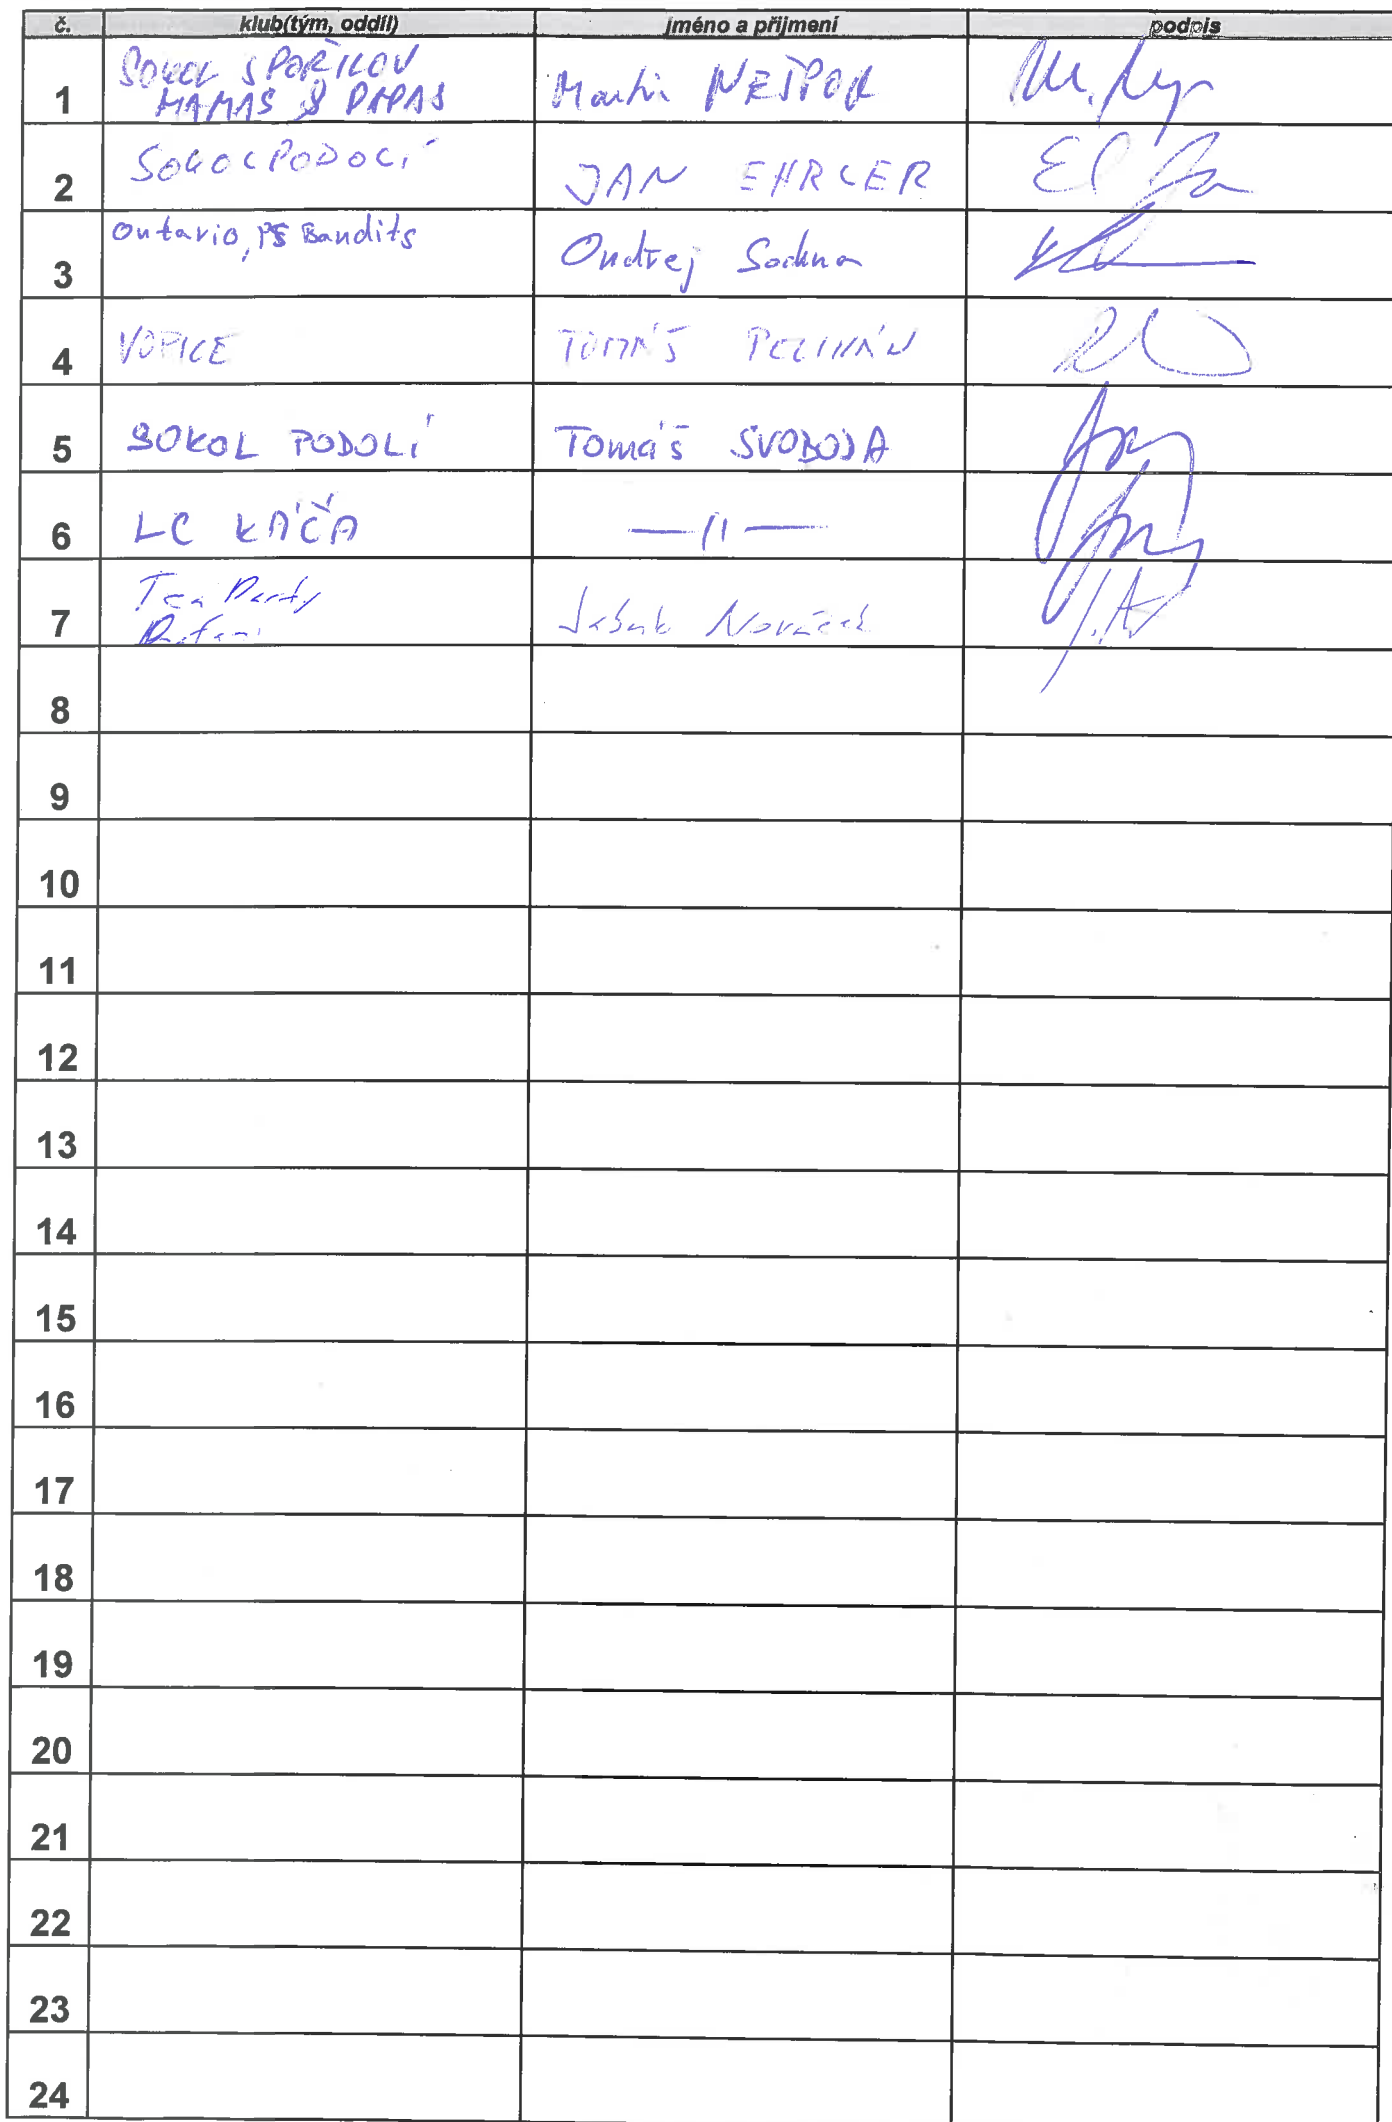 č. klub(tým, oddíl) jméno a příjmení podpis
1 SOKOL SPOŘILOV Martin NEŠPOR
MAMAS & PAPAS
2 SOKOL PODOLÍ JAN EHRLER
3 Ontario, PS Bandits Ondřej
4 VOPICE TOMÁŠ
5 SOKOL PODOLÍ Tomáš SVOBODA
6 LC KÁČA —//—
7 Tea Party Jakub Nováček
8
9
10
11
12
13
14
15
16
17
18
19
20
21
22
23
24